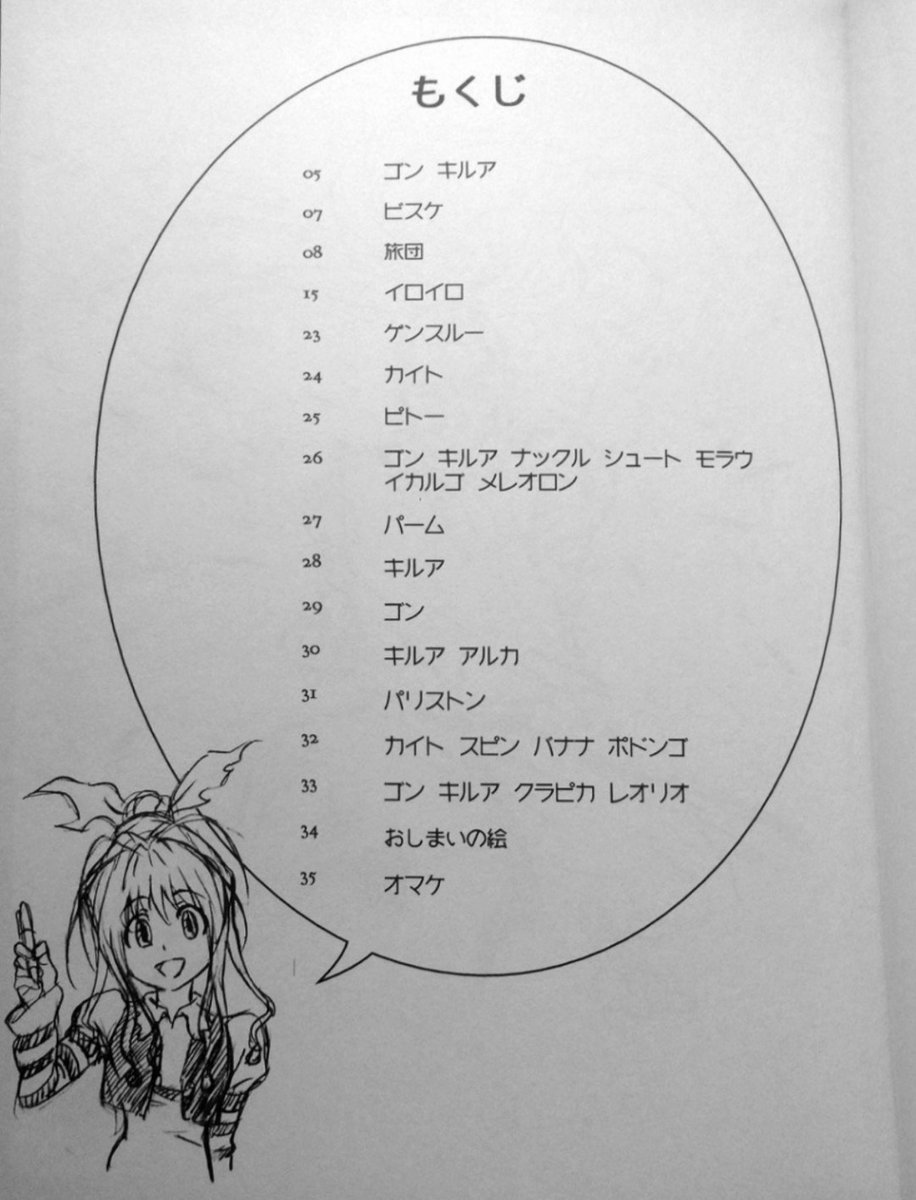 もくじ
05 ゴン キルア
07 ビスケ
08 旅団
15 イロイロ
23 ゲンスルー
24 カイト
25 ピトー
26 ゴン キルア ナックル シュート モラウ
イカルゴ メレオロン
27 パーム
28 キルア
29 ゴン
30 キルア アルカ
31 パリストン
32 カイト スピン バナナ ポドンゴ
33 ゴン キルア クラピカ レオリオ
34 おしまいの絵
35 オマケ